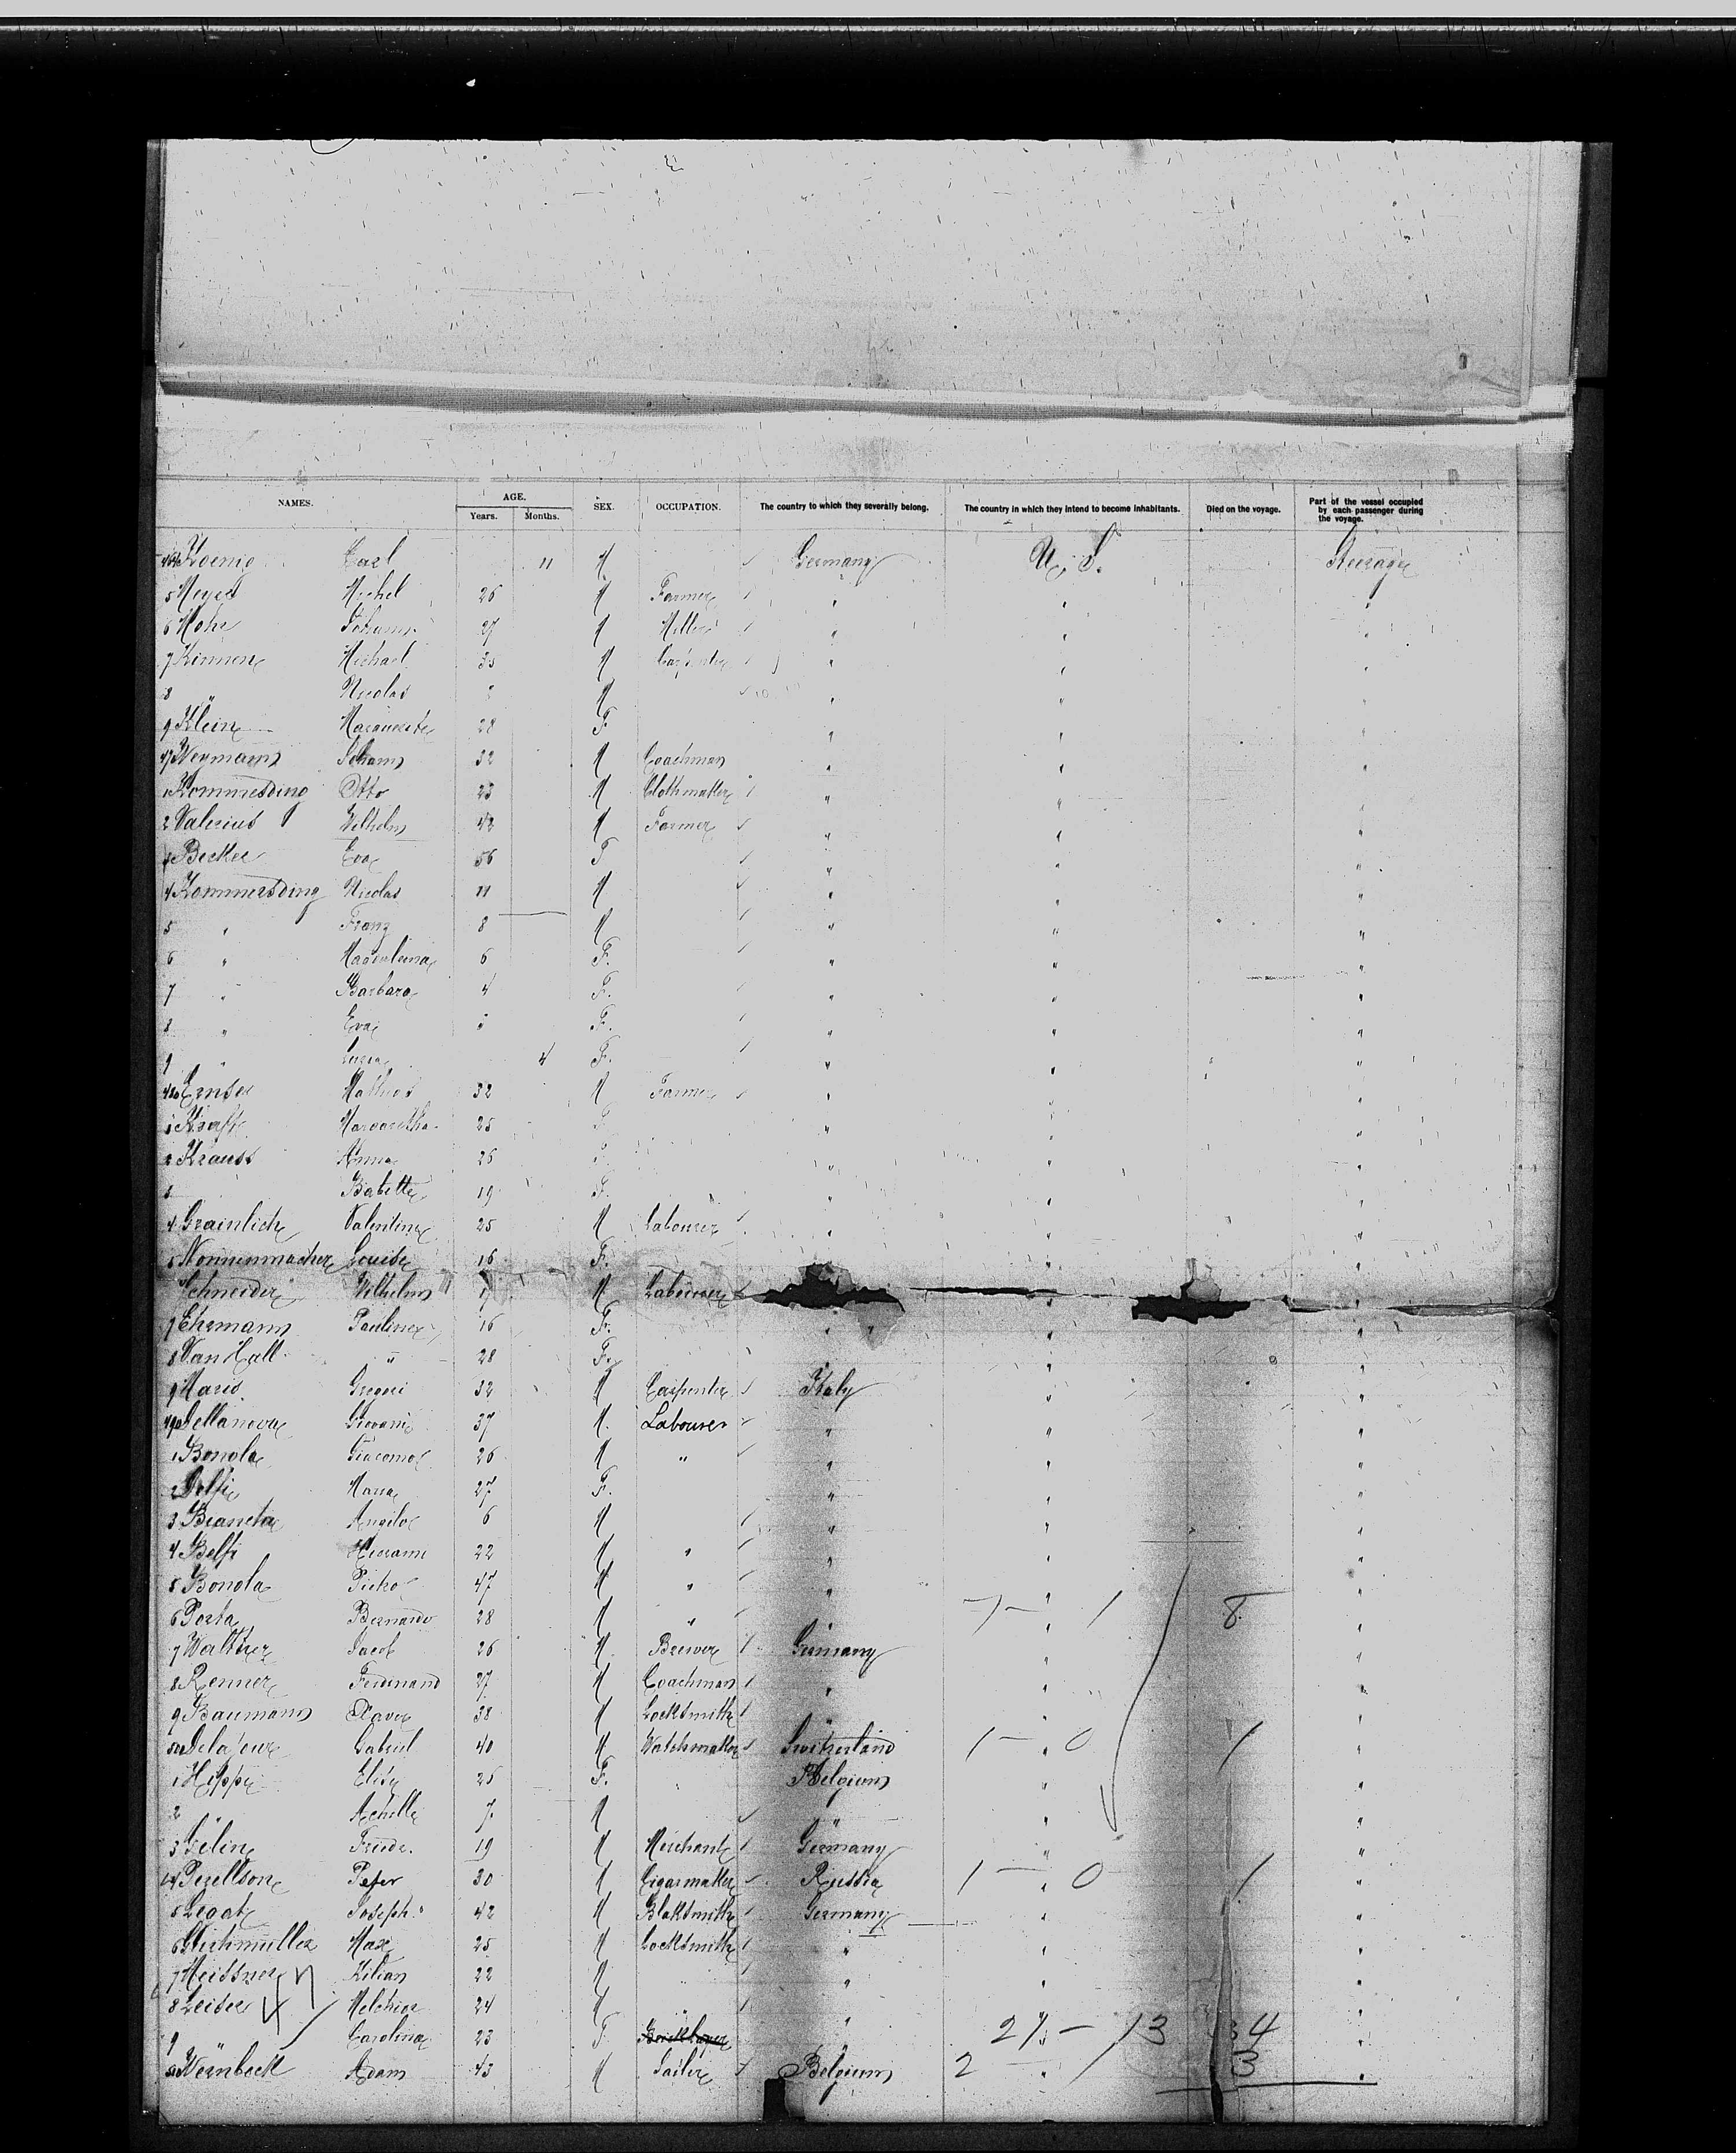 NAMES. AGE. Years. Months. SEX. OCCUPATION. The country to which they severally belong. The country in which they intend to become inhabitants. Died on the voyage. Part of the vessel occupied by each passenger during the voyage.
Koenig Carl 11 M Germany U. S. Steerage
5 Meyer Michel 26 M Farmer " " "
6 Mohr Johann 27 M Miller " " "
7 Kinnen Michael 35 M Carpenter " " "
8 " Nicolas M " " "
9 Klein Marguerite 28 F " " "
Weymann Johann 32 M Coachman " " "
1 Kommesding Otto 23 M Clothmaker " " "
2 Valerius Wilhelm 42 M Farmer " " "
3 Becker Eva 56 F " " "
4 Kommersding Nicolas 11 M " " "
5 " Franz 8 M " " "
6 " Magdalena 6 F. " " "
7 " Barbara 4 F. " " "
8 " Eva F. " " "
9 " 4 F. " " "
480 Emser Mathias 32 M Farmer " " "
1 Kraft Margaretha 25 F " " "
2 Krauss Anna 26 " " "
3 Babette 19 F. " " "
4 Grainlich Valentin 25 M Labourer " " "
5 Nonnenmacher Louise 16 F. " "
Schneider Wilhelm M Labourer " "
7 Ehrmann Pauline 16 F. " " "
8 Van Hall " 28 F. " "
9 Mario Gregori 32 M Carpenter Italy " "
490 Dellanova Giovani 37 M. Labourer " " "
1 Bonola Giacomo 26 M " " " "
2 Belfi Maria 27 F. " " "
3 Biancta Angilo 6 M " " "
4 Belfi 22 M " " " "
5 Bonola Pietro 47 M " " " "
6 Porta Bernardo 28 M " " 7 — 1 8 "
7 Walther Jacob 26 M Brewer Germany " "
8 Renner Ferdinand 27 M Coachman " " "
9 Baumann Xaver 38 M Locksmith " " "
500 Gabriel 40 M Watchmaker Switzerland 1 — 0 1 "
1 Hippe Elise 25 F. Belgium " "
2 " Achille 7 M " " "
3 Gelin Friedr. 19 M Merchant Germany " "
4 Perellson Peter 30 M Cigarmaker Russia 1 — 0 1 "
5 Legat Joseph 42 M Blaksmith Germany " "
6 Max 25 M Locksmith " " "
7 Meissner Kilian 22 M " " " "
8 Leider Melchior 24 M " " " "
9 " Carolina 23 F. " 21 — 13 34 "
Weinbeck Adam 43 M Sailer Belgium 2 — 1 3 "